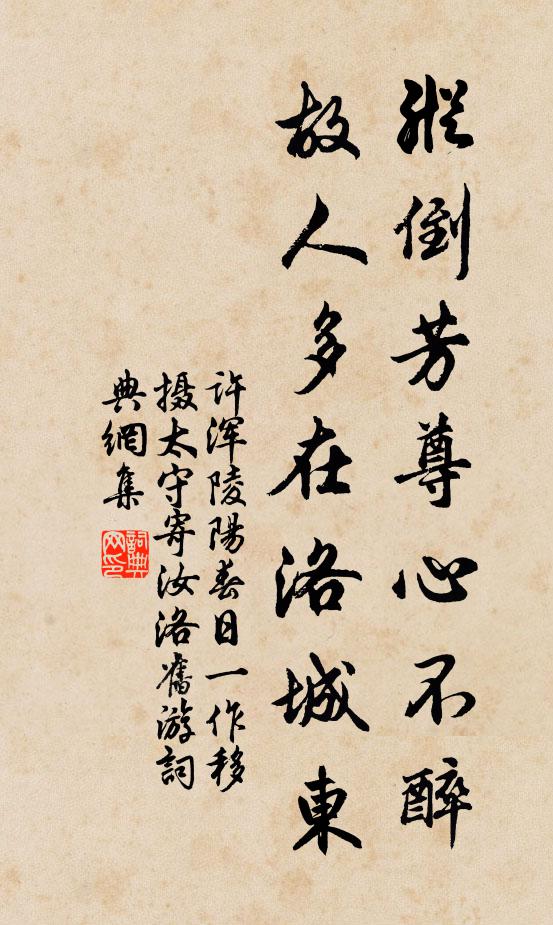 縱倒芳尊心不醉
故人多在洛城東
许浑陵陽春日一作移
摄太守寄汝洛舊游詞
典網集
詞典
网印